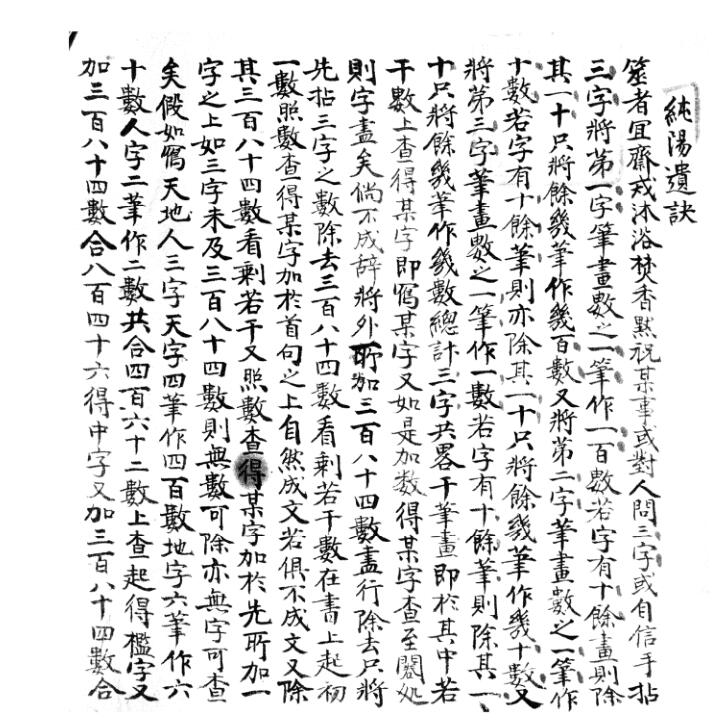 純陽遺訣
筮者宜齋戒沐浴焚香默祝某事或對人問三字或自信手拈
三字將第一字筆畫數之一筆作一百數若字有十餘畫則除
其一十只將餘幾筆作幾百數又將第二字筆畫數之一筆作
十數若字有十餘筆則亦除其一十只將餘幾筆作幾十數又
將第三字筆畫數之一筆作一數若字有十餘筆則除其一
十只將餘幾筆作幾數總計三字共畧干筆畫即於其中若
干數上查得某字即寫某字又如是加数得某字查至闕処
則字盡矣倘不成辞將外所加三百八十四數盡行除去只將
先拈三字之數除去三百八十四數看剩若干數在書上起初
一數照數查得某字加於首句之上自然成文若俱不成文又除
其三百八十四數看剩若干又照數查得某字加於先所加一
字之上如三字未及三百八十四數則無數可除亦無字可查
矣假如寫天地人三字天字四筆作四百數地字六筆作六
十數人字二筆作二數共合四百六十二數上查起得檻字又
加三百八十四數合八百四十六得中字又加三百八十四數合